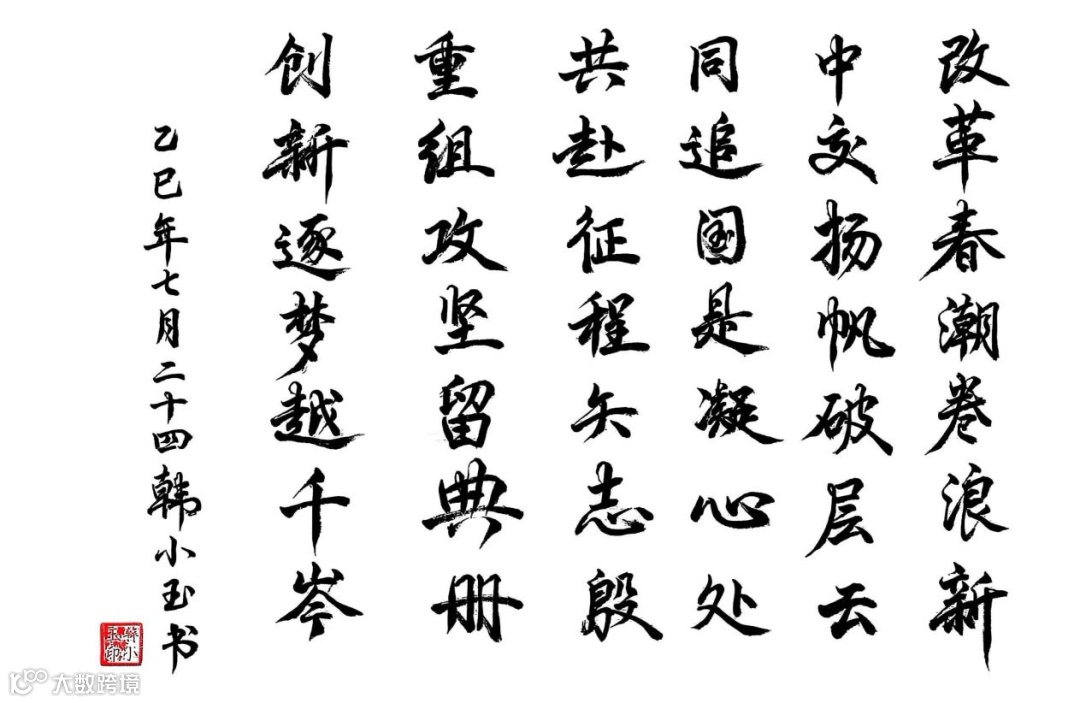 改革春潮卷浪新
中交扬帆破层云
同追国是凝心处
共赴征程矢志殷
重组攻坚留典册
创新逐梦越千岑
乙巳年七月二十四韩小玉书
韩小玉印
大数跨境